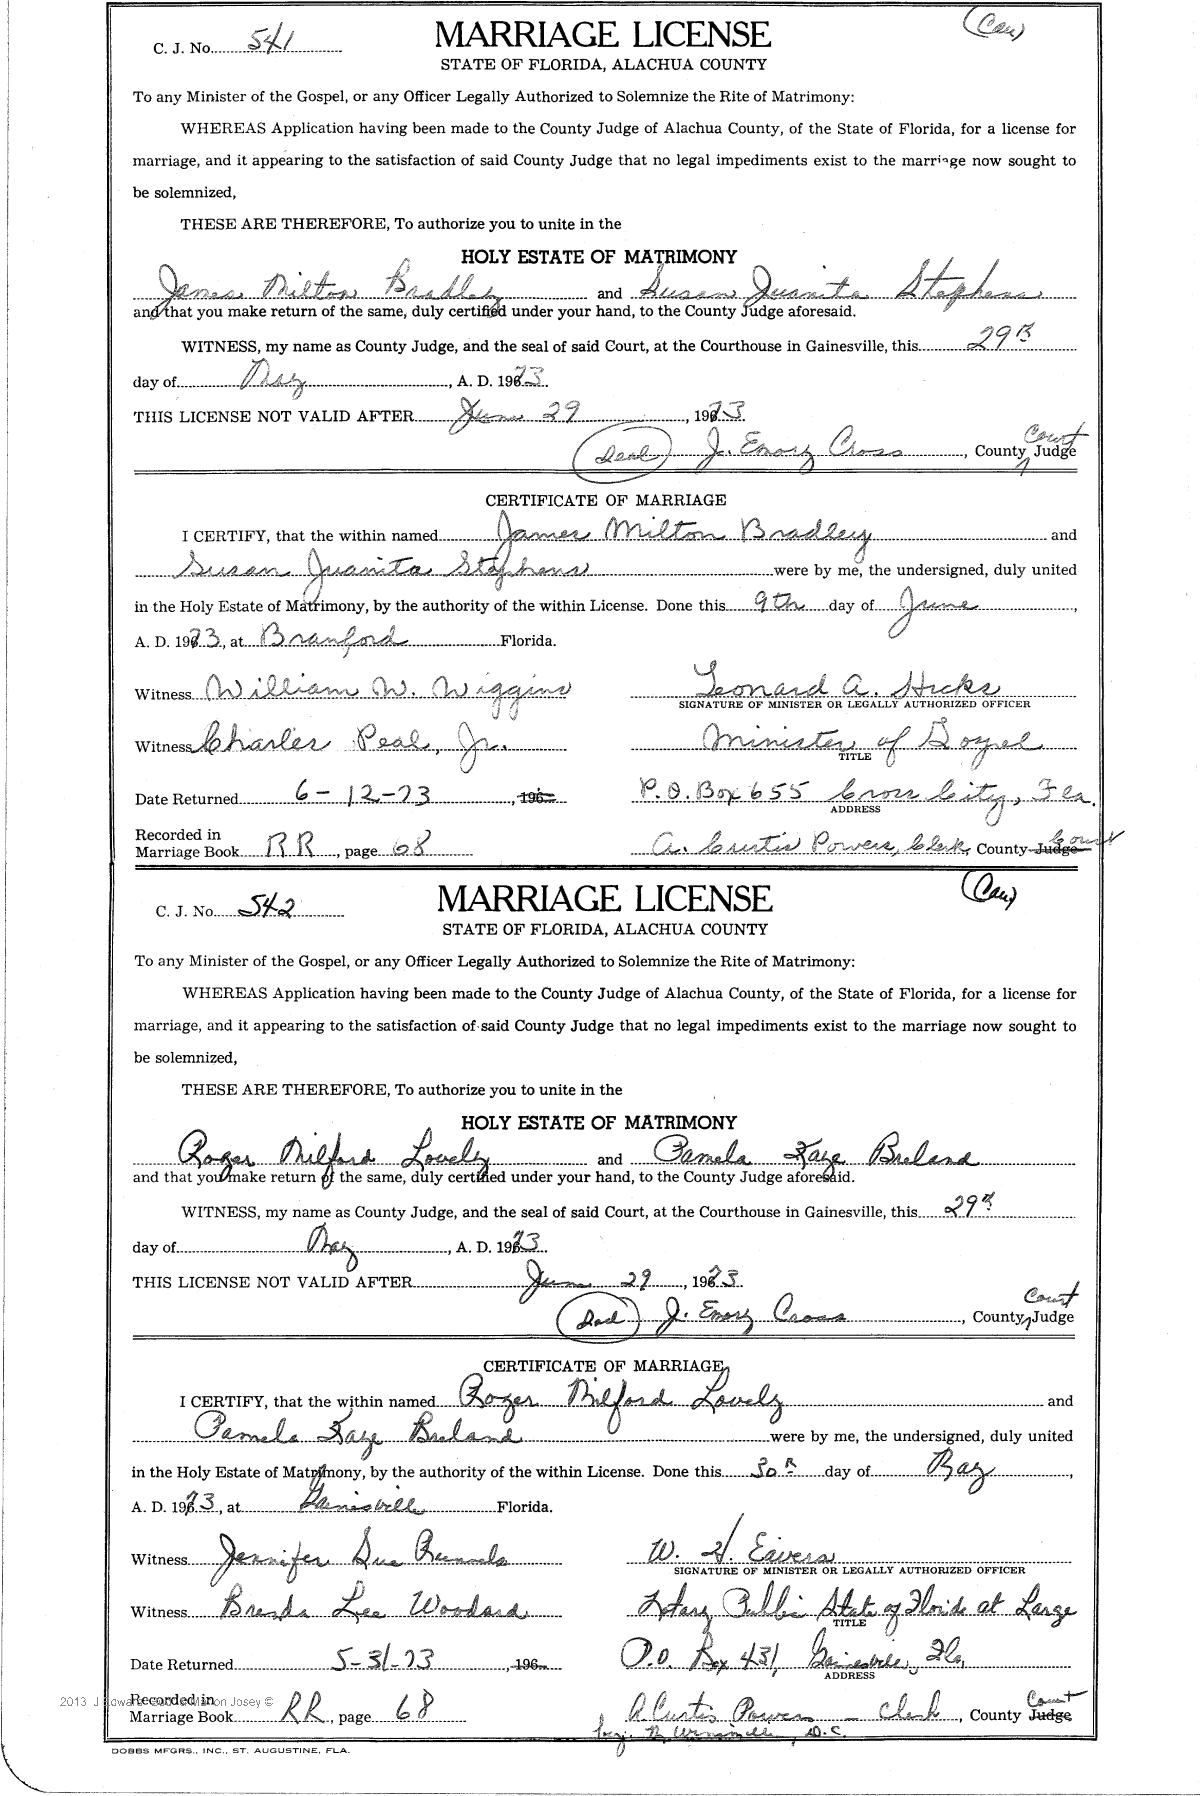 (Cau)
C. J. No. 541 MARRIAGE LICENSE
STATE OF FLORIDA, ALACHUA COUNTY
To any Minister of the Gospel, or any Officer Legally Authorized to Solemnize the Rite of Matrimony:
WHEREAS Application having been made to the County Judge of Alachua County, of the State of Florida, for a license for
marriage, and it appearing to the satisfaction of said County Judge that no legal impediments exist to the marriage now sought to
be solemnized,
THESE ARE THEREFORE, To authorize you to unite in the
HOLY ESTATE OF MATRIMONY
James Milton Bradley and Susan Juanita Stephens
and that you make return of the same, duly certified under your hand, to the County Judge aforesaid.
WITNESS, my name as County Judge, and the seal of said Court, at the Courthouse in Gainesville, this 29th
day of May, A. D. 1973.
THIS LICENSE NOT VALID AFTER June 29, 1973.
(Seal) J. Emory Cross, County Court Judge
CERTIFICATE OF MARRIAGE
I CERTIFY, that the within named James Milton Bradley and
Susan Juanita Stephens were by me, the undersigned, duly united
in the Holy Estate of Matrimony, by the authority of the within License. Done this 9th day of June,
A. D. 1973, at Branford Florida.
Witness William W. Wiggins Leonard A. Hicks
SIGNATURE OF MINISTER OR LEGALLY AUTHORIZED OFFICER
Witness Charles Peal, Jr. Minister of Gospel
TITLE
Date Returned 6-12-73, 196 P.O. Box 655 Cross City, Fla.
ADDRESS
Recorded in
Marriage Book RR, page 68 A. Curtis Powers, Clerk, County Judge Court
(Cau)
C. J. No. 542 MARRIAGE LICENSE
STATE OF FLORIDA, ALACHUA COUNTY
To any Minister of the Gospel, or any Officer Legally Authorized to Solemnize the Rite of Matrimony:
WHEREAS Application having been made to the County Judge of Alachua County, of the State of Florida, for a license for
marriage, and it appearing to the satisfaction of said County Judge that no legal impediments exist to the marriage now sought to
be solemnized,
THESE ARE THEREFORE, To authorize you to unite in the
HOLY ESTATE OF MATRIMONY
Roger Milford Lovely and Pamela Kaye Breland
and that you make return of the same, duly certified under your hand, to the County Judge aforesaid.
WITNESS, my name as County Judge, and the seal of said Court, at the Courthouse in Gainesville, this 29th
day of May, A. D. 1973.
THIS LICENSE NOT VALID AFTER June 29, 1973.
(Seal) J. Emory Cross, County Court Judge
CERTIFICATE OF MARRIAGE
I CERTIFY, that the within named Roger Milford Lovely and
Pamela Kaye Breland were by me, the undersigned, duly united
in the Holy Estate of Matrimony, by the authority of the within License. Done this 30th day of May,
A. D. 1973, at Gainesville Florida.
Witness Jennifer Sue Runnels W. H. Eivers
SIGNATURE OF MINISTER OR LEGALLY AUTHORIZED OFFICER
Witness Brenda Lee Woodard Notary Public State of Florida at Large
TITLE
Date Returned 5-31-73, 196 P.O. Box 431, Gainesville, Fla.
ADDRESS
2013 J Edward Marion Josey ©
Recorded in
Marriage Book RR, page 68 A Curtis Powers - Clerk, County Judge Court
D.C.
DOBBS MFGRS., INC., ST. AUGUSTINE, FLA.